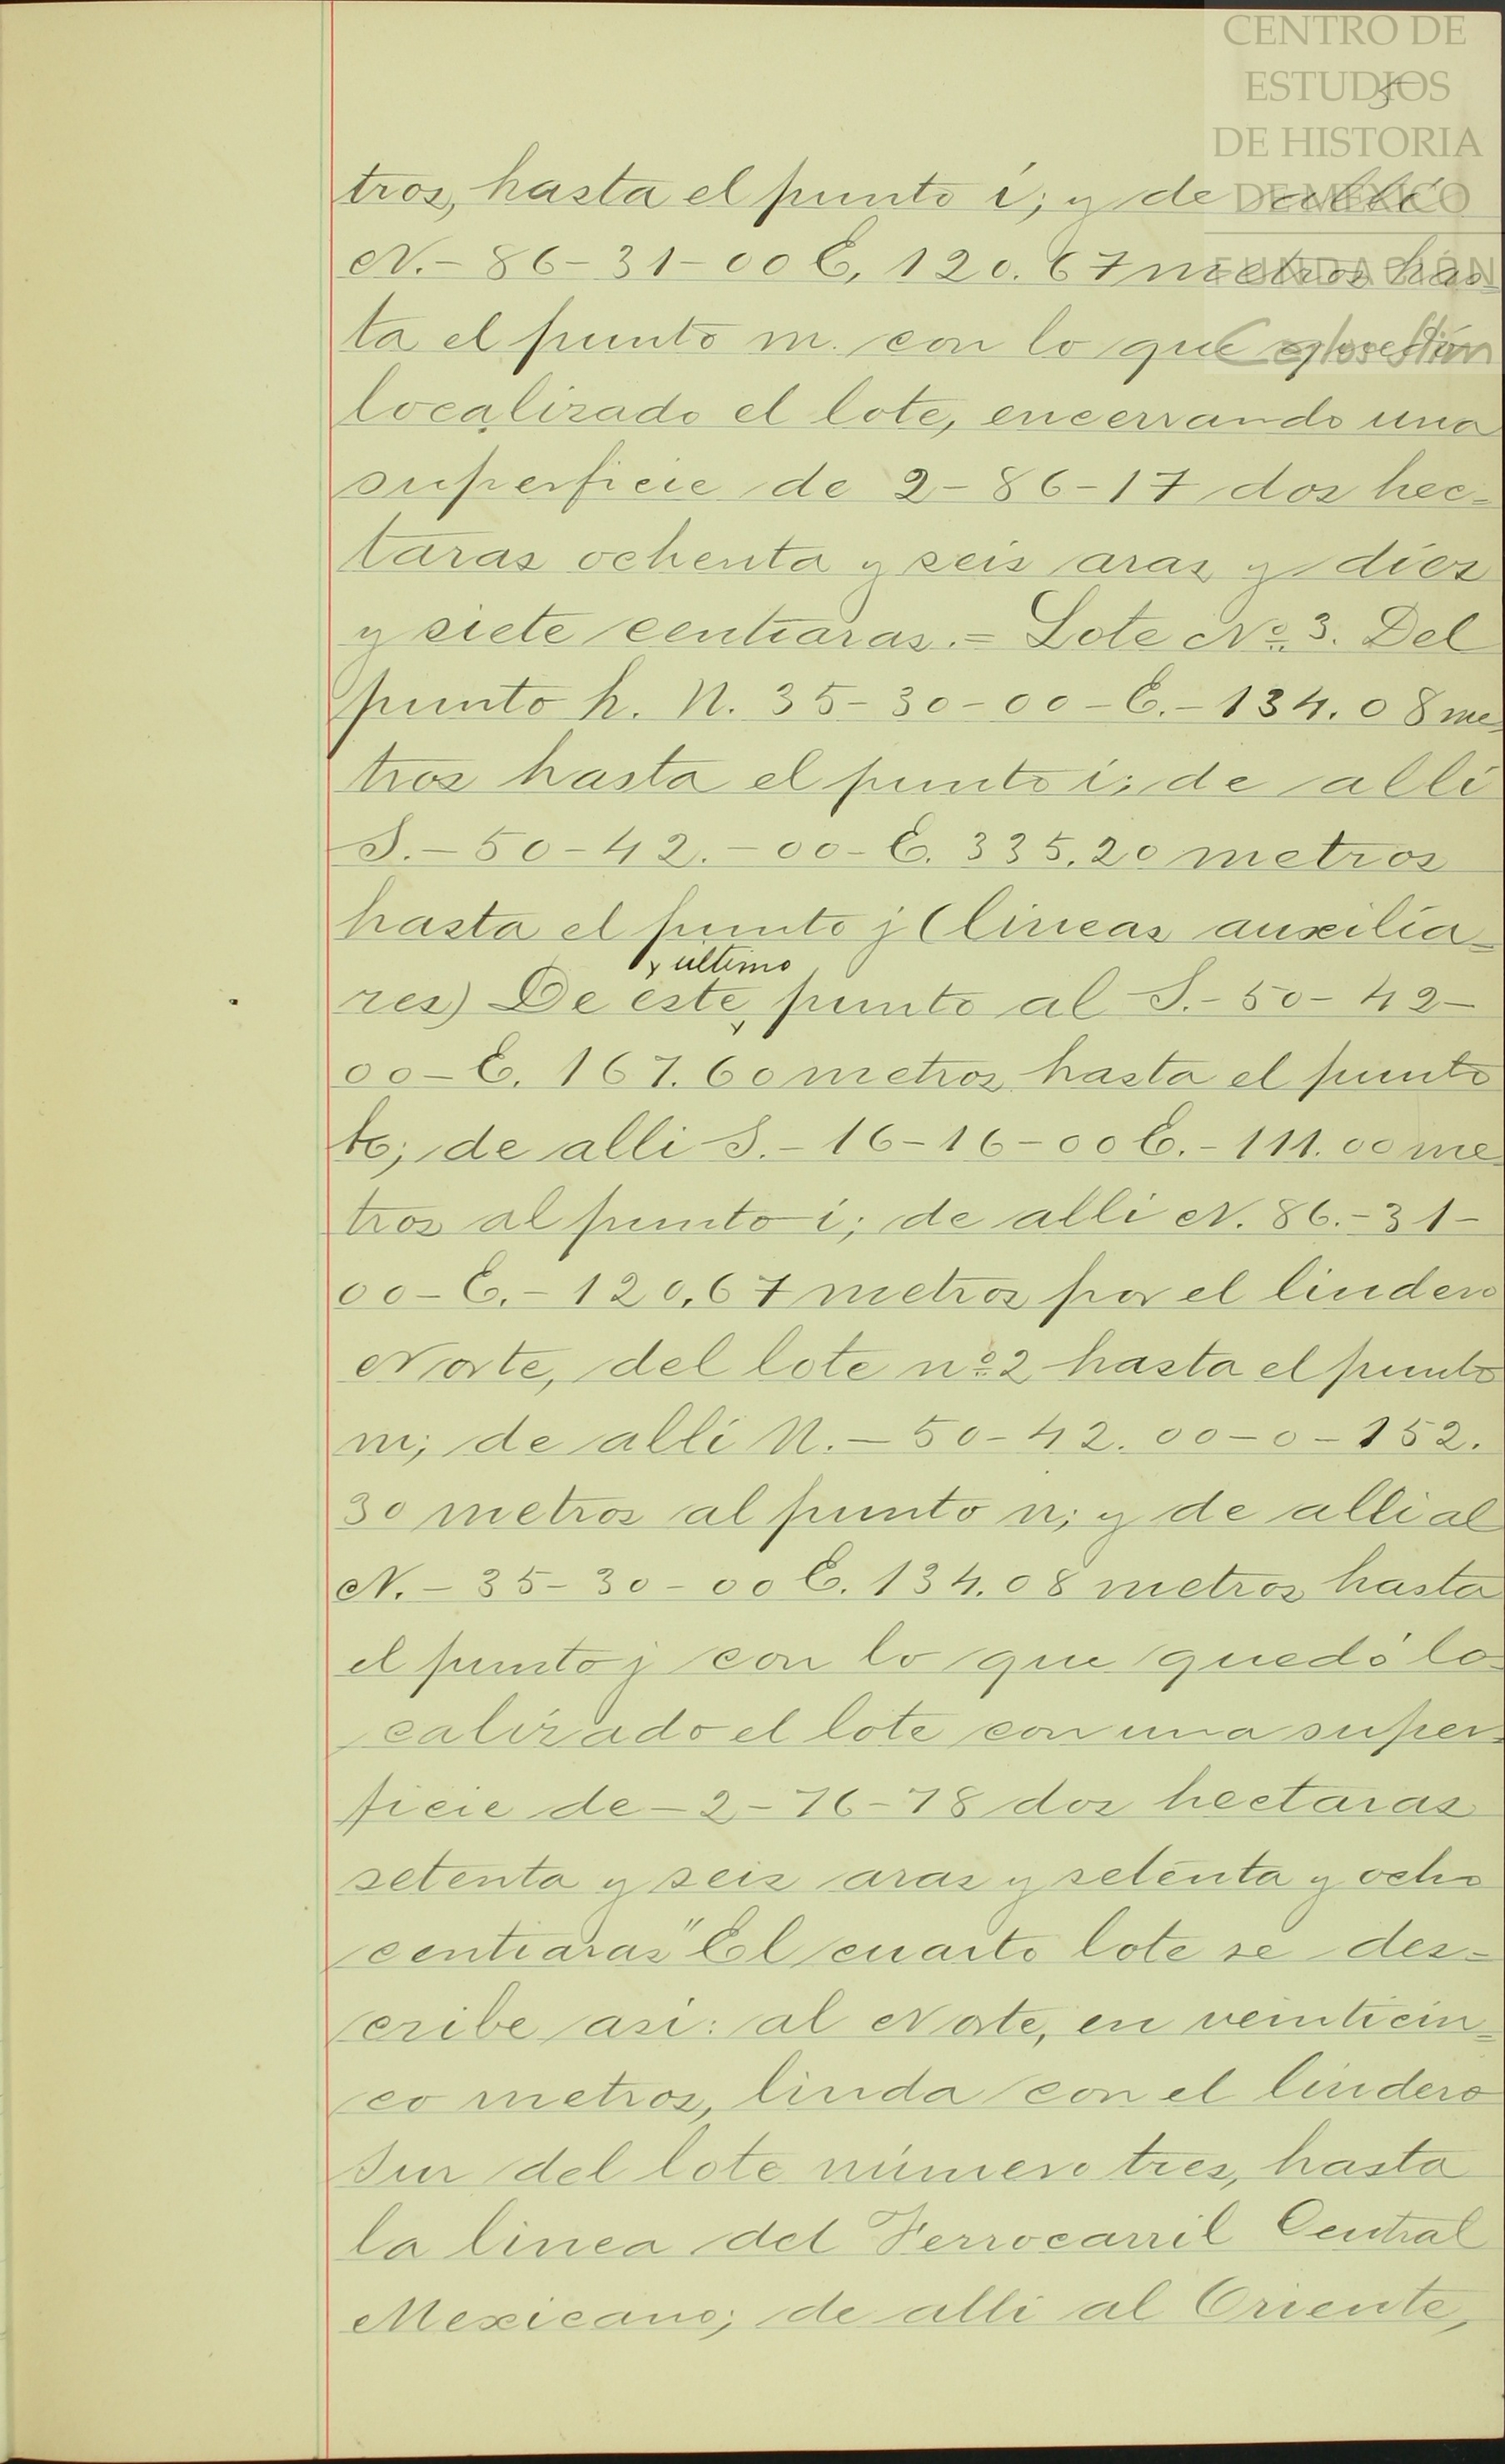 CENTRO DE
ESTUDIOS
DE HISTORIA
DE MÉXICO
FUNDACIÓN
Carlos Slim
5
tros, hasta el punto i; y de allí
N.- 86-31-00 E, 120.67 metros has-
ta el punto m. con lo que quedó
localizado el lote, encerrando una
superficie de 2-86-17 dos hec-
taras ochenta y seis aras y diez
y siete centiaras.= Lote No. 3. Del
punto h. N. 35-30-00-E.-134.08 me
tros hasta el punto i; de allí
S.-50-42.-00-E. 335.20 metros
hasta el punto j (lineas auxilia-
y ultimo
res) De este, punto al S.-50-42-
00-E. 167.60 metros hasta el punto
k; de alli S.-16-16-00 E.-111.00 me
tros al punto i; de alli N. 86.-31-
00-E.-120,67 metros por el lindero
Norte, del lote nº 2 hasta el punto
m; de allí N.-50-42.00-0-152.
30 metros al punto n; y de alli al
N.-35-30-00 E. 134.08 metros hasta
el punto j con lo que quedó lo-
calizado el lote con una super-
ficie de-2-76-78 dos hectaras
setenta y seis aras y setenta y ocho
centiaras" El cuarto lote se des=
cribe asi: al Norte, en veinticin=
co metros, linda con el lindero
Sur del lote número tres, hasta
la linea del Ferrocarril Central
Mexicano; de alli al Oriente,